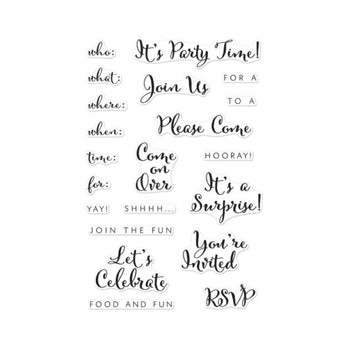 who:
It's Party Time!
what:
Join Us
FOR A
where:
TO A
when:
Please Come
time:
Come
on
Over
HOORAY!
for:
It's a
Surprise!
YAY!
SHHHH...
JOIN THE FUN
You're
Invited
Let's
Celebrate
FOOD AND FUN
RSVP